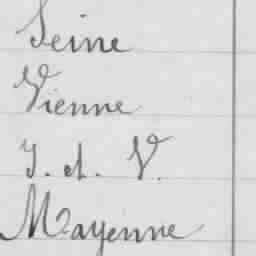 Seine
Vienne
I. et. V.
Mayenne